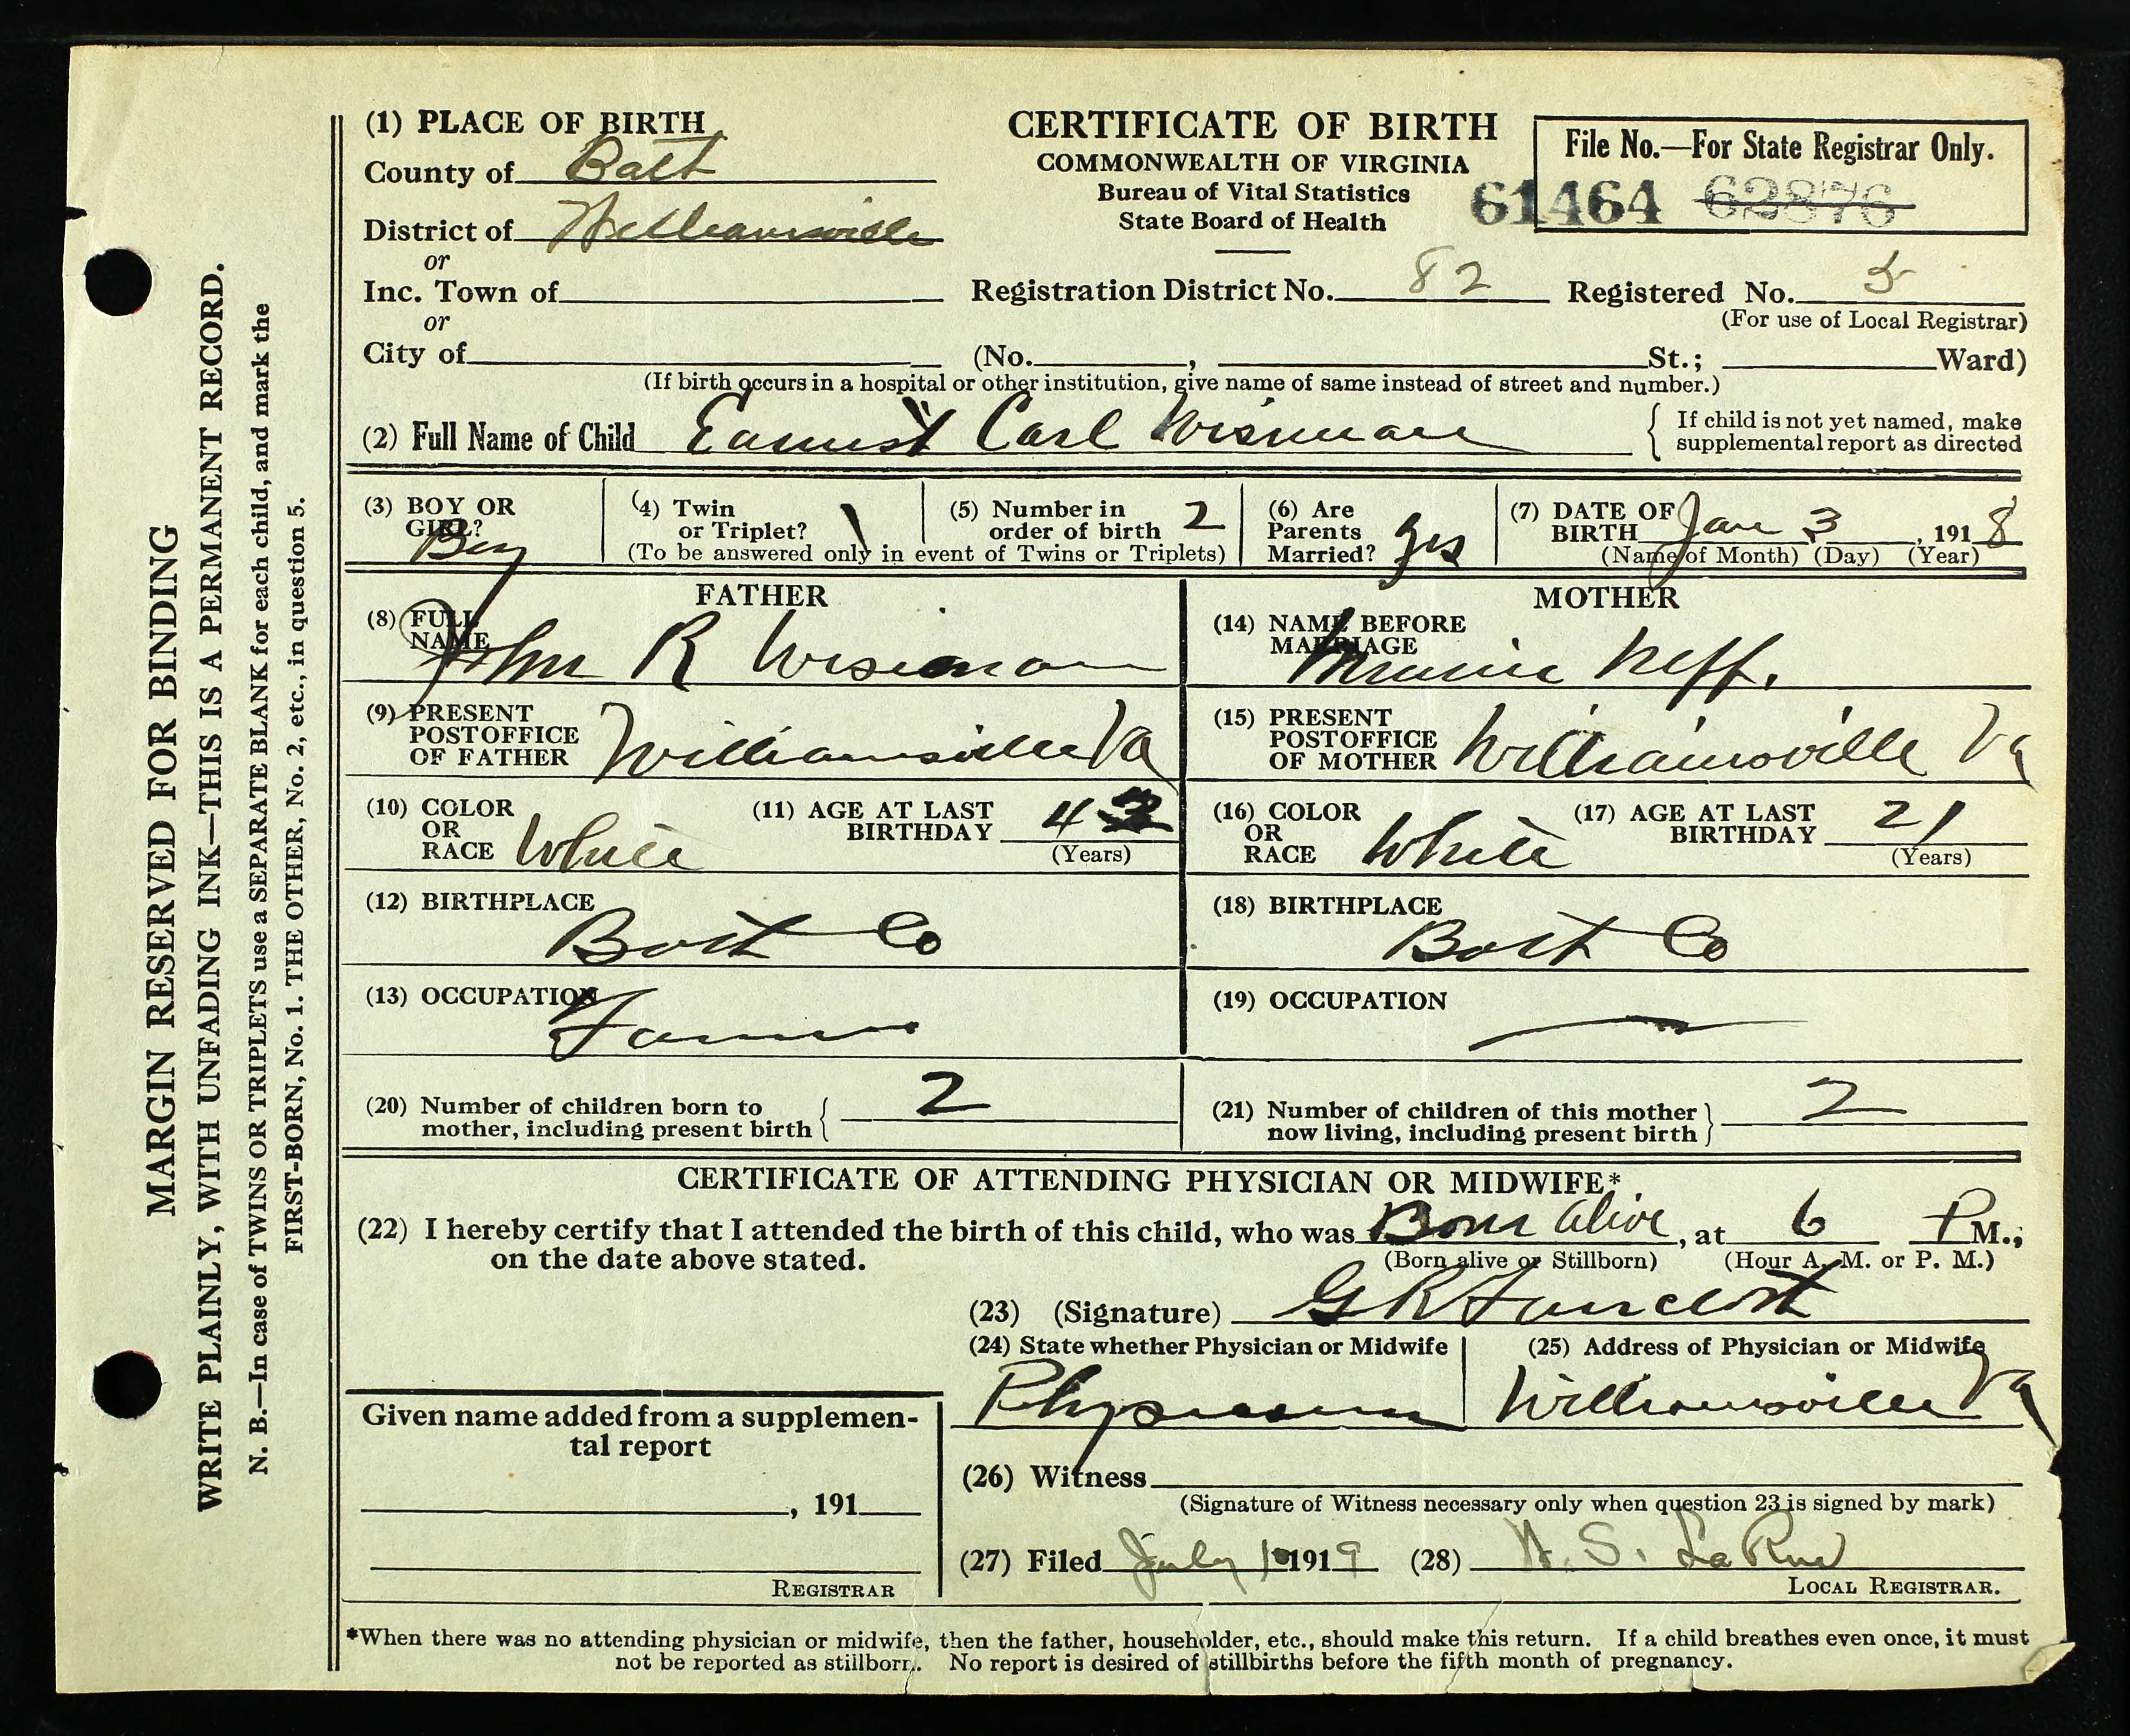 MARGIN RESERVED FOR BINDING
WRITE PLAINLY, WITH UNFADING INK—THIS IS A PERMANENT RECORD.
N. B.—In case of TWINS OR TRIPLETS use a SEPARATE BLANK for each child, and mark the
FIRST-BORN, No. 1. THE OTHER, No. 2, etc., in question 5.
(1) PLACE OF BIRTH
County of Batt
District of Williamsville
or
Inc. Town of
or
City of (No. , St.; Ward)
(If birth occurs in a hospital or other institution, give name of same instead of street and number.)
CERTIFICATE OF BIRTH
COMMONWEALTH OF VIRGINIA
Bureau of Vital Statistics
State Board of Health
File No.—For State Registrar Only.
61464 62876
Registration District No. 82 Registered No. 5
(For use of Local Registrar)
(2) Full Name of Child Earnest Carl Wiseman
If child is not yet named, make
supplemental report as directed
(3) BOY OR
GIRL?
Boy
(4) Twin
or Triplet?
(5) Number in
order of birth 2
(To be answered only in event of Twins or Triplets)
(6) Are
Parents
Married? yes
(7) DATE OF
BIRTH Jan 3, 1918
(Name of Month) (Day) (Year)
FATHER
(8) FULL
NAME
John R Wiseman
(9) PRESENT
POSTOFFICE
OF FATHER Williamsville Va
(10) COLOR
OR
RACE White
(11) AGE AT LAST
BIRTHDAY 43
(Years)
(12) BIRTHPLACE
Bath Co
(13) OCCUPATION
Farmer
MOTHER
(14) NAME BEFORE
MARRIAGE
Minnie Neff.
(15) PRESENT
POSTOFFICE
OF MOTHER Williamsville Va
(16) COLOR
OR
RACE White
(17) AGE AT LAST
BIRTHDAY 21
(Years)
(18) BIRTHPLACE
Bath Co
(19) OCCUPATION
(20) Number of children born to
mother, including present birth 2
(21) Number of children of this mother
now living, including present birth 2
CERTIFICATE OF ATTENDING PHYSICIAN OR MIDWIFE*
(22) I hereby certify that I attended the birth of this child, who was Born alive, at 6 P M.,
on the date above stated. (Born alive or Stillborn) (Hour A. M. or P. M.)
(23) (Signature) G R
(24) State whether Physician or Midwife
Physician
(25) Address of Physician or Midwife
Williamsville Va
Given name added from a supplemen-
tal report
, 191
REGISTRAR
(26) Witness
(Signature of Witness necessary only when question 23 is signed by mark)
(27) Filed July 1 1919 (28) S. LaRue
LOCAL REGISTRAR.
*When there was no attending physician or midwife, then the father, householder, etc., should make this return. If a child breathes even once, it must
not be reported as stillborn. No report is desired of stillbirths before the fifth month of pregnancy.